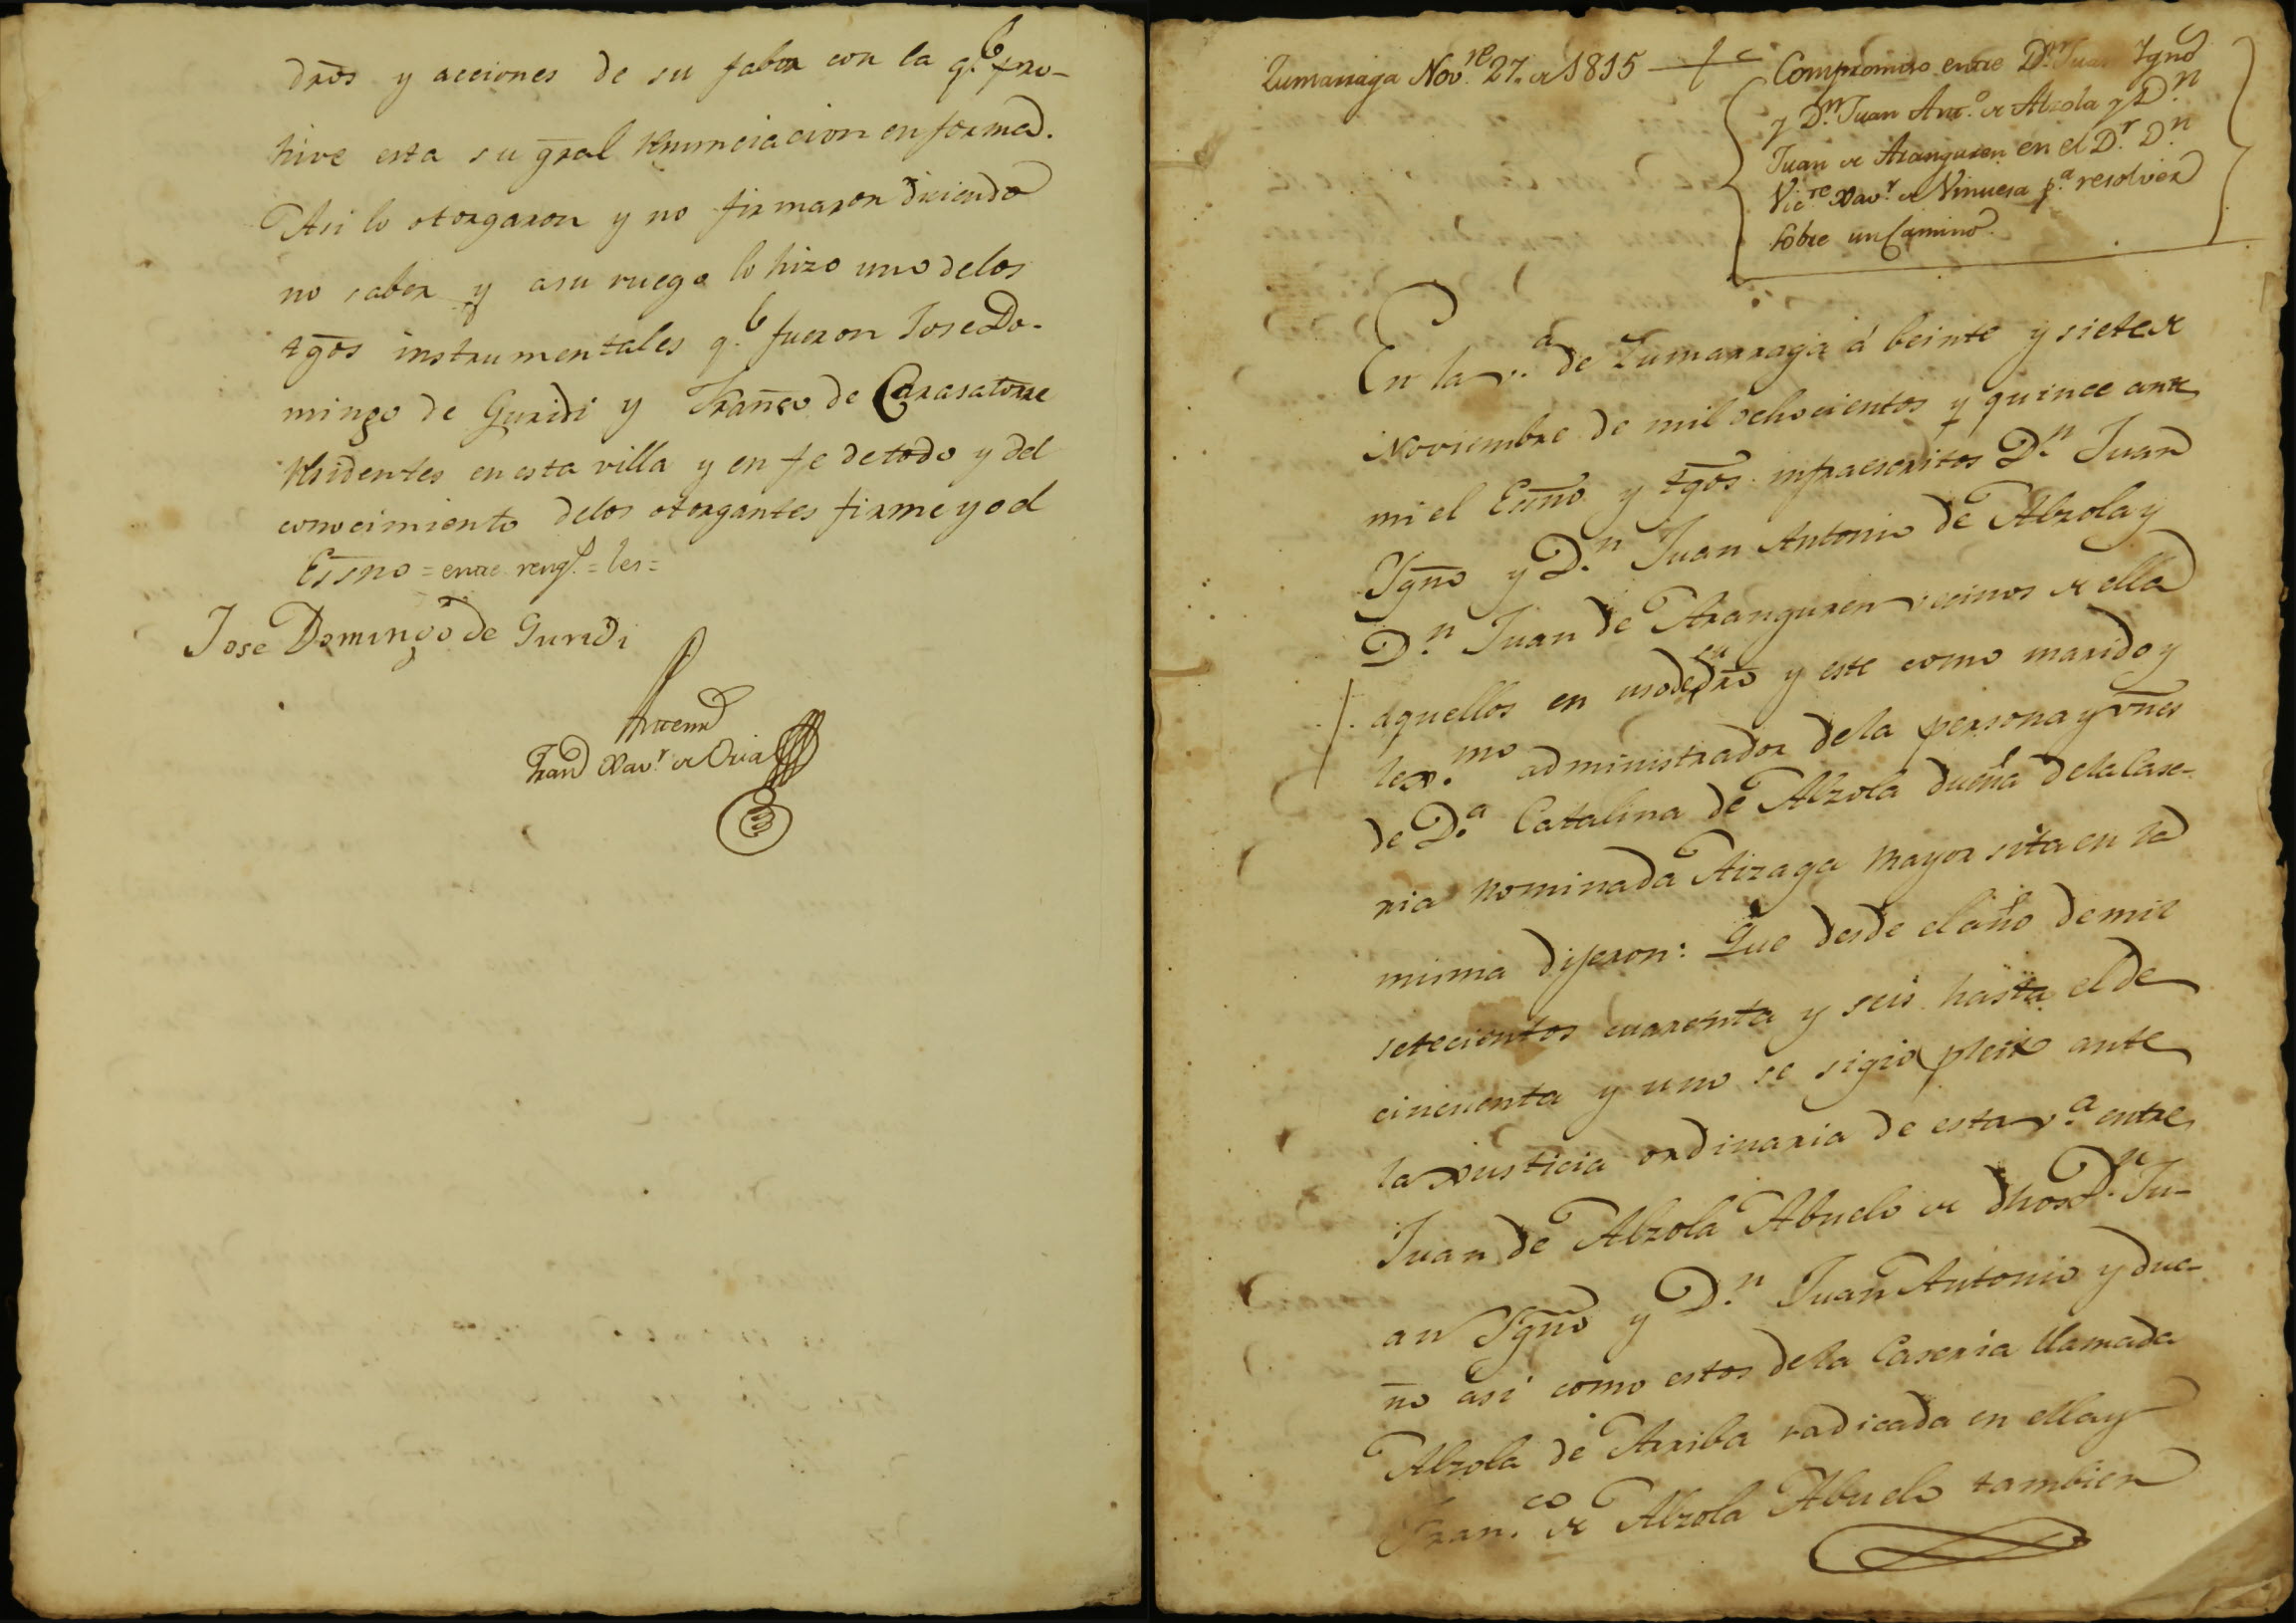 dros y acciones de su fabor con la q.e pro-
hive esta su gral renunciacion en forma.
Asi lo otorgaron y no firmaron diciendo
no saber y a su ruego lo hizo uno de los
tgos instrumentales q.e fueron Jose Do-
mingo de Guridi y Franco de Carasatorre
residentes en esta villa y en fe de todo y del
conocimiento de los otorgantes firme yo el
Essno = entre rengl. = les =
Jose Domingo de Guridi
Antemi
Fran Xav.r de Oria
Zumarraga Nov.re 27. de 1815
Compromiso entre D.n Juan Ygno
y D.n Juan Ant.o de Alzola y D.n
Juan de Aranguren en el D.r D.n
Vic.te Xav.r de Vinuesa p.a resolver
sobre un Camino.
En la v.a de Zumarraga á beinte y siete de
Noviembre de mil ochocientos y quince ante
mi el Essno y tgos infraescritos D.n Juan
Ygno y D.n Juan Antonio de Alzola y
D.n Juan de Aranguren vecinos de ella
aquellos en uso de su dro y este como marido y
lex.mo administrador de la persona y vnes
de D.a Catalina de Alzola dueña de la Case-
ria nominada Aizaga mayor sita en la
misma dijeron: Que desde el año de mil
setecientos cuarenta y seis hasta el de
cincuenta y uno se sigio pleito ante
la Justicia ordinaria de esta v.a entre
Juan de Alzola Abuelo de dhos D.n Ju-
an Ygno y D.n Juan Antonio y due-
ño asi como estos de la Caseria llamada
Alzola de Arriba radicada en ella y
Fran.co de Alzola Abuelo tambien